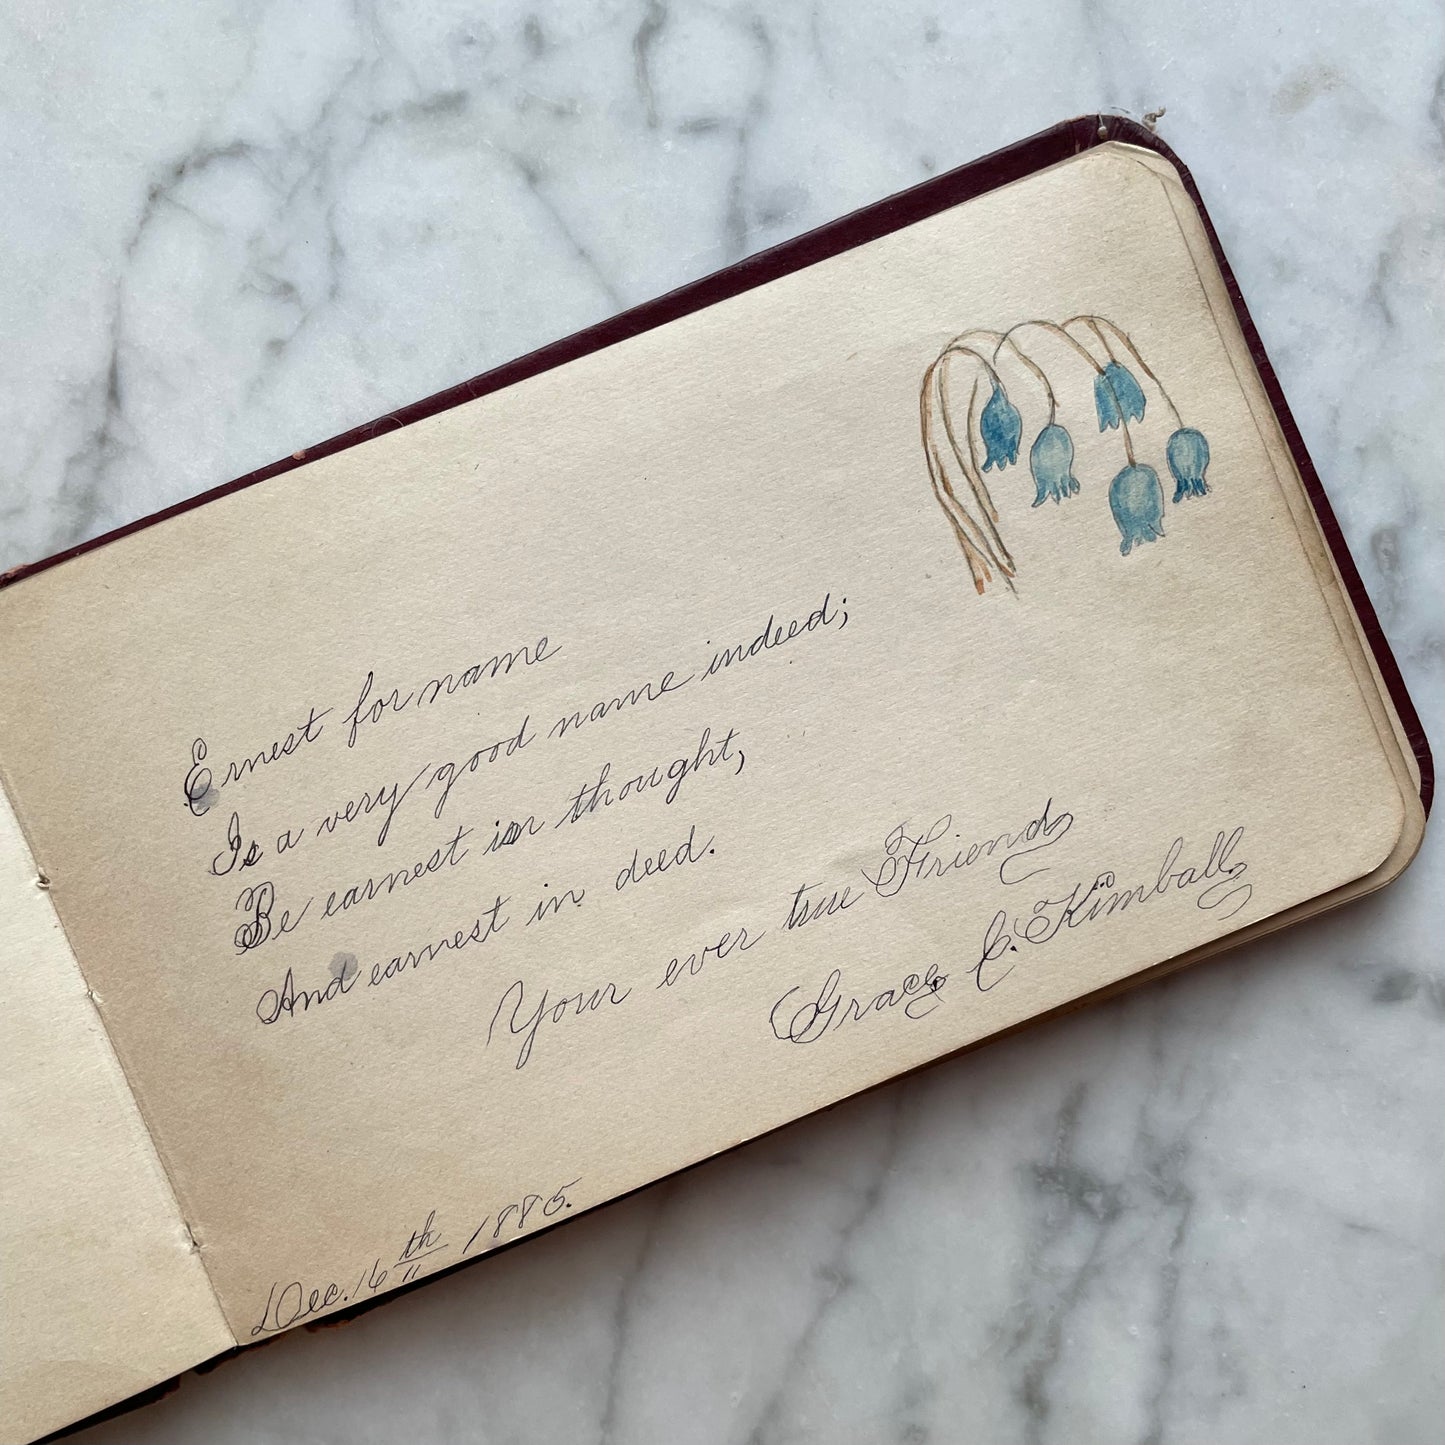 Ernest for name
Is a very good name indeed;
Be earnest in thought,
And earnest in deed.
Your ever true Friend
Grace C. Kimball
Dec. 16th 1885.